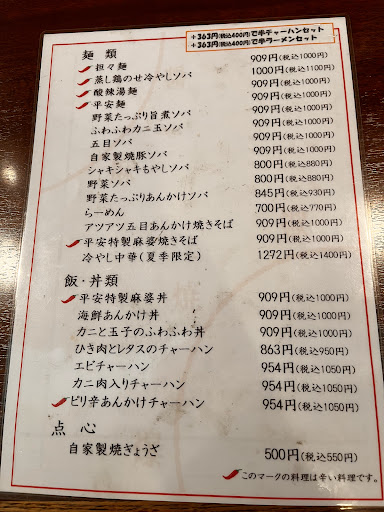 +363円(税込400円)で半チャーハンセット
+363円(税込400円)で半ラーメンセット
麺類
担々麺 909円(税込1000円)
蒸し鶏のせ冷やしソバ 1000円(税込1100円)
酸辣湯麺 909円(税込1000円)
平安麺 909円(税込1000円)
野菜たっぷり旨煮ソバ 909円(税込1000円)
ふわふわカニ玉ソバ 909円(税込1000円)
五目ソバ 909円(税込1000円)
自家製焼豚ソバ 909円(税込1000円)
シャキシャキもやしソバ 800円(税込880円)
野菜ソバ 800円(税込880円)
野菜たっぷりあんかけソバ 845円(税込930円)
らーめん 700円(税込770円)
アツアツ五目あんかけ焼きそば 909円(税込1000円)
平安特製麻婆焼きそば 909円(税込1000円)
冷やし中華(夏季限定) 1272円(税込1400円)
飯・丼類
平安特製麻婆丼 909円(税込1000円)
海鮮あんかけ丼 909円(税込1000円)
カニと玉子のふわふわ丼 909円(税込1000円)
ひき肉とレタスのチャーハン 863円(税込950円)
エビチャーハン 954円(税込1050円)
カニ肉入りチャーハン 954円(税込1050円)
ピリ辛あんかけチャーハン 954円(税込1050円)
点心
自家製焼ぎょうざ 500円(税込550円)
このマークの料理は辛い料理です。